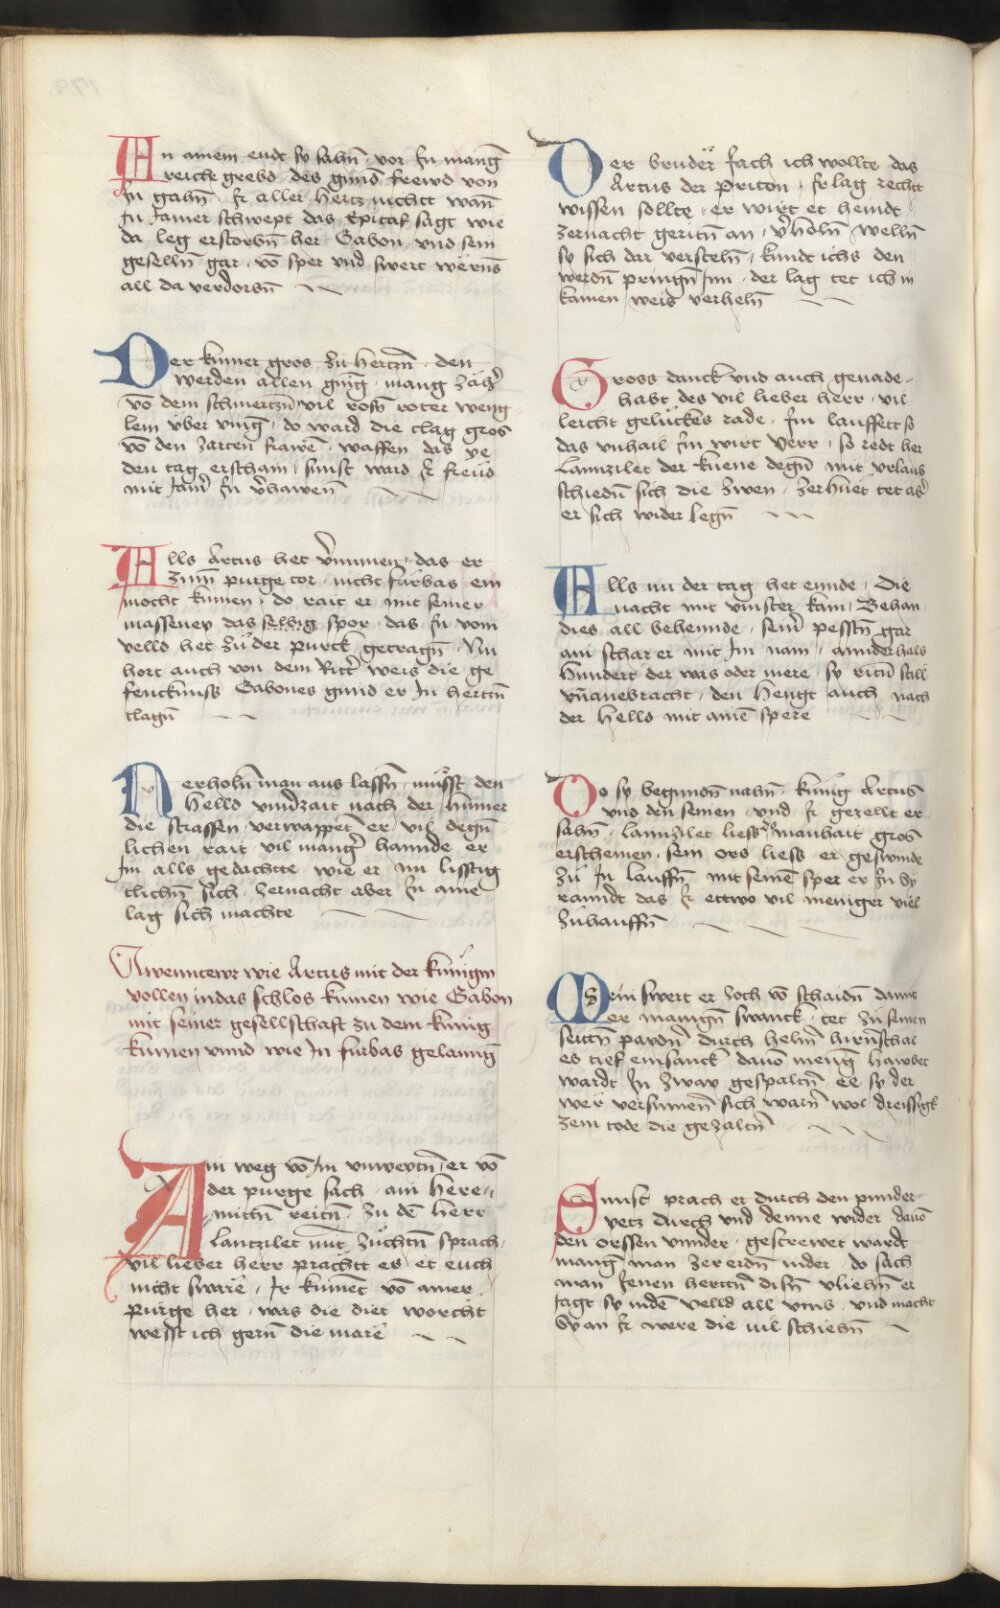 An ainem endt sy sahn̄ vor In manḡ
reiche grebd des gund frewd von
In gahn̄ Ir aller hertz nichtt wan̄
In Jamer schwept das Epitaf sagt wie
da leg erstorbn̄ her Gabon vnd sein
geselln̄ gar vō sper vnd swert
all da verdorbn̄
Der kumer gros zu hertzn̄ den
werden allen ging mang
vō dem schmertzn̄ vil rosn̄ roter weng
lein vber ving do ward die clag gros
vō den zarten frawē waffen das ye
den tag erschain sunst ward Ir freud
mit Jam̄ In
Alls Artus het v̄numen das er
zum purge tor nicht furbas ein
mocht kumen do rait er mit seiner
masseney das selbig spor das In vom
velld het zu der purck getragn̄ Nu
hort auch von dem Ritt̄ weis die ge
fencknuss Gabones gund er In hertzn̄
clagn̄
Verholn̄ man aus lassn̄ muesst den
helld vnuerzait nach der
die strassen verwappet er vil degn̄
lichen rait vil manḡ hannde er
Im alls gedachtte wie er im lisstig
tlichn̄ sich zernacht aber In aine
lag sich machte
Awenntewr wie Artus mit der kunigin
vollen in das schlos kumen wie Gabon
mit seiner gesellschaft zu dem kunig
kumen vnnd wie In furbas gelanng
Ain weg vō Im vnweytn̄ er vō
der purge sach ain here
mittn̄ reitn̄ zu dē herr
Lantzilet mit zuchtn̄ sprach
vil lieber herr prachtt es et euch
nicht sware Ir kumet vō ainer
purge her was die diet worcht
wesst ich gern̄ die mare
Der bruder sach ich wollte das
Artus der Priton Ir lag recht
wissen sollte er wirt et heindt
zernacht geritn̄ an v̄holn̄ welln̄
sy sich dar versteln̄ kundt ichs den
werdn̄ pringn̄ Inn der lag tet ich in
kainen weis verheln̄
Gross danck vnd auch genade
habt des vil lieber herr vil
leicht geluckes rade Im lauffett so
das vnhail Im wirt verr so redt her
Lannzilet der kuene degn̄ mit vrlaub
schiedn̄ sich die zwen tet
er sich wider legn̄
Alls nu der tag het ennde Die
nacht mit vinster kam Behan
dies all behennde sein̄ pesstn̄ gar
ain schar er mit Im nam annderhalb
hundert der was oder mere sy ritn̄ still
vn̄anebracht den hengt auch nach
der helld mit ainē spere
Do sy begunnn̄ nahn̄ kunig Artus
vnd den seinen vnd Ir gezellt er
sahn̄ lannzilet liess manhait gros
erscheinen sein ors liess er geswinde
zu In lauffn̄ mit seinē sper er In by
ranndt das Ir ettwo vil meniger viel
zuhauffn̄
Sein swert er zoch vō schaidn̄ damit
er manign̄ swanck tet zu seinen
seittn̄ paydn̄ durch helm̄ hirn̄schal
es tief einsanck dauō menḡ hawbet
wardt In zway gespaltn̄ ee sy der
wer versunnen̄ sich warn̄ wol dreissigk
zem tode die gezaltn̄
Sunst prach er durch den punder
yetz durch vnd denne wider dauō
den orssen vnnder gestrewet wardt
mang man zer erdn̄ nider do sach
man Jenen herttn̄ disn̄ vliehn̄ er
Jagt sy in dē velld all vmb vnd macht
Sy an Ir were die vil schiehn̄